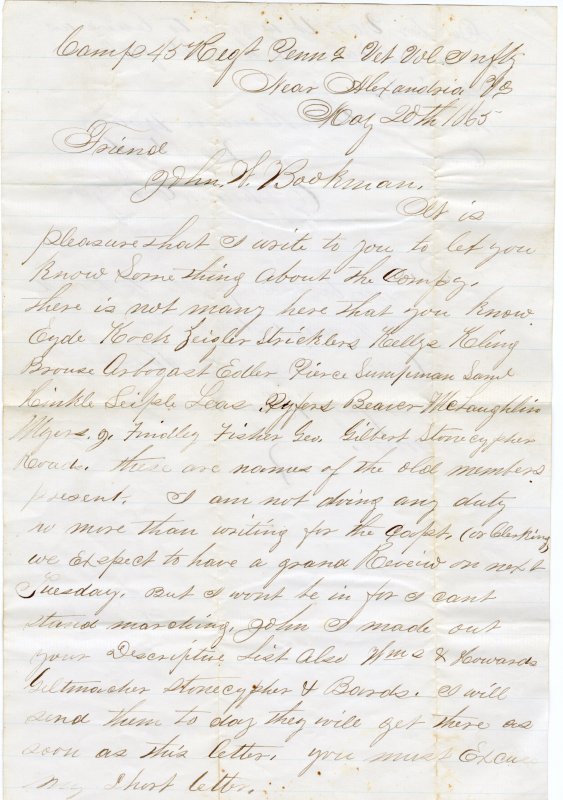 Camp 45 Regt Penn a Vet Vol Infty
Near Alexandria Va
May 20th 1865
Friend
John. W. Bookman.
It is
pleasure that I write to you to let you
know Something about the Compy.
there is not many here that you know
Eyde Kock Zeigler Stricklers Kellys Kling
Brouse Arbogast Edler Pierce Sumpman Saml
Hinkle Seiple Leas Pyfers Beaver McLaughlin
Myers. J. Findley Fisher Geo. Gilbert Stonecypher
Roads. these are names of the old members
present. I am not doing any duty
no more than writing for the Capt. (or Clerking)
we Expect to have a grand Review on next
Tuesday. But I wont be in for I cant
stand marching. John I made out
your Descriptive List also Wms & Howards
Giltmacher Stonecypher & Bards. I will
send them to day they will get there as
soon as this letter. you must Excuse
my short letter.